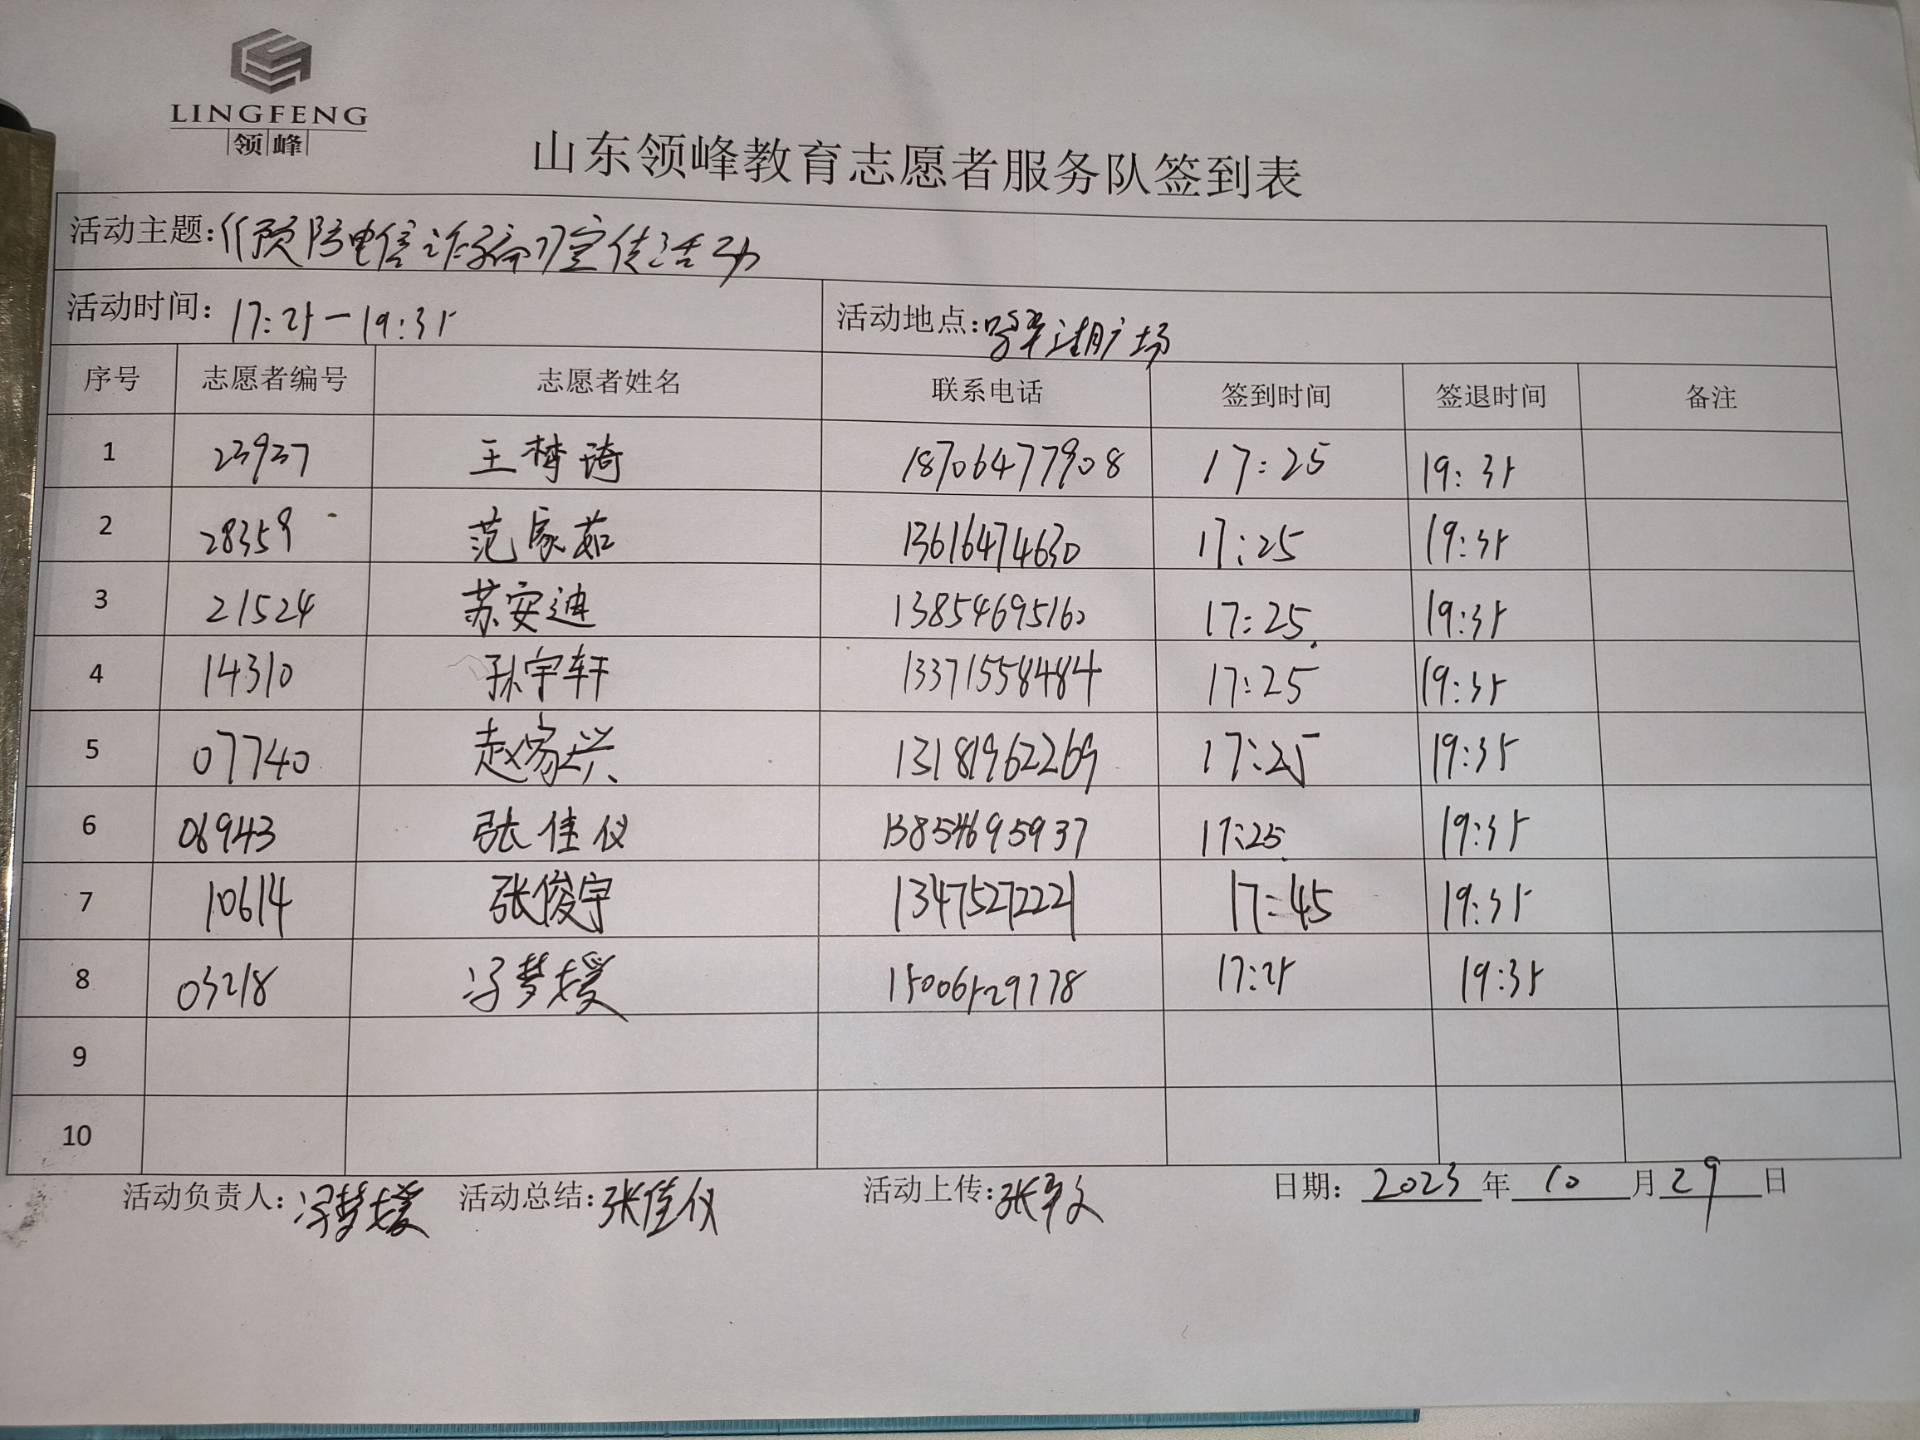 LINGFENG
领峰
山东领峰教育志愿者服务队签到表
活动主题:《预防电信诈骗》宣传活动
活动时间: 17:25—19:35 活动地点: 广场
序号 志愿者编号 志愿者姓名 联系电话 签到时间 签退时间 备注
1 23937 王梦琦 18706477908 17:25 19:35
2 28359 范家茹 13616474630 17:25 19:35
3 21524 苏安迪 13854695160 17:25 19:35
4 14310 孙宇轩 13371558484 17:25 19:35
5 07740 赵家兴 13181962269 17:25 19:35
6 06943 张佳仪 13854695937 17:25 19:35
7 10614 张俊宇 13475272221 17:45 19:35
8 03218 冯梦媛 15006529778 17:25 19:35
9
10
活动负责人: 冯梦媛 活动总结: 张佳仪 活动上传: 张 日期: 2023年10月29日